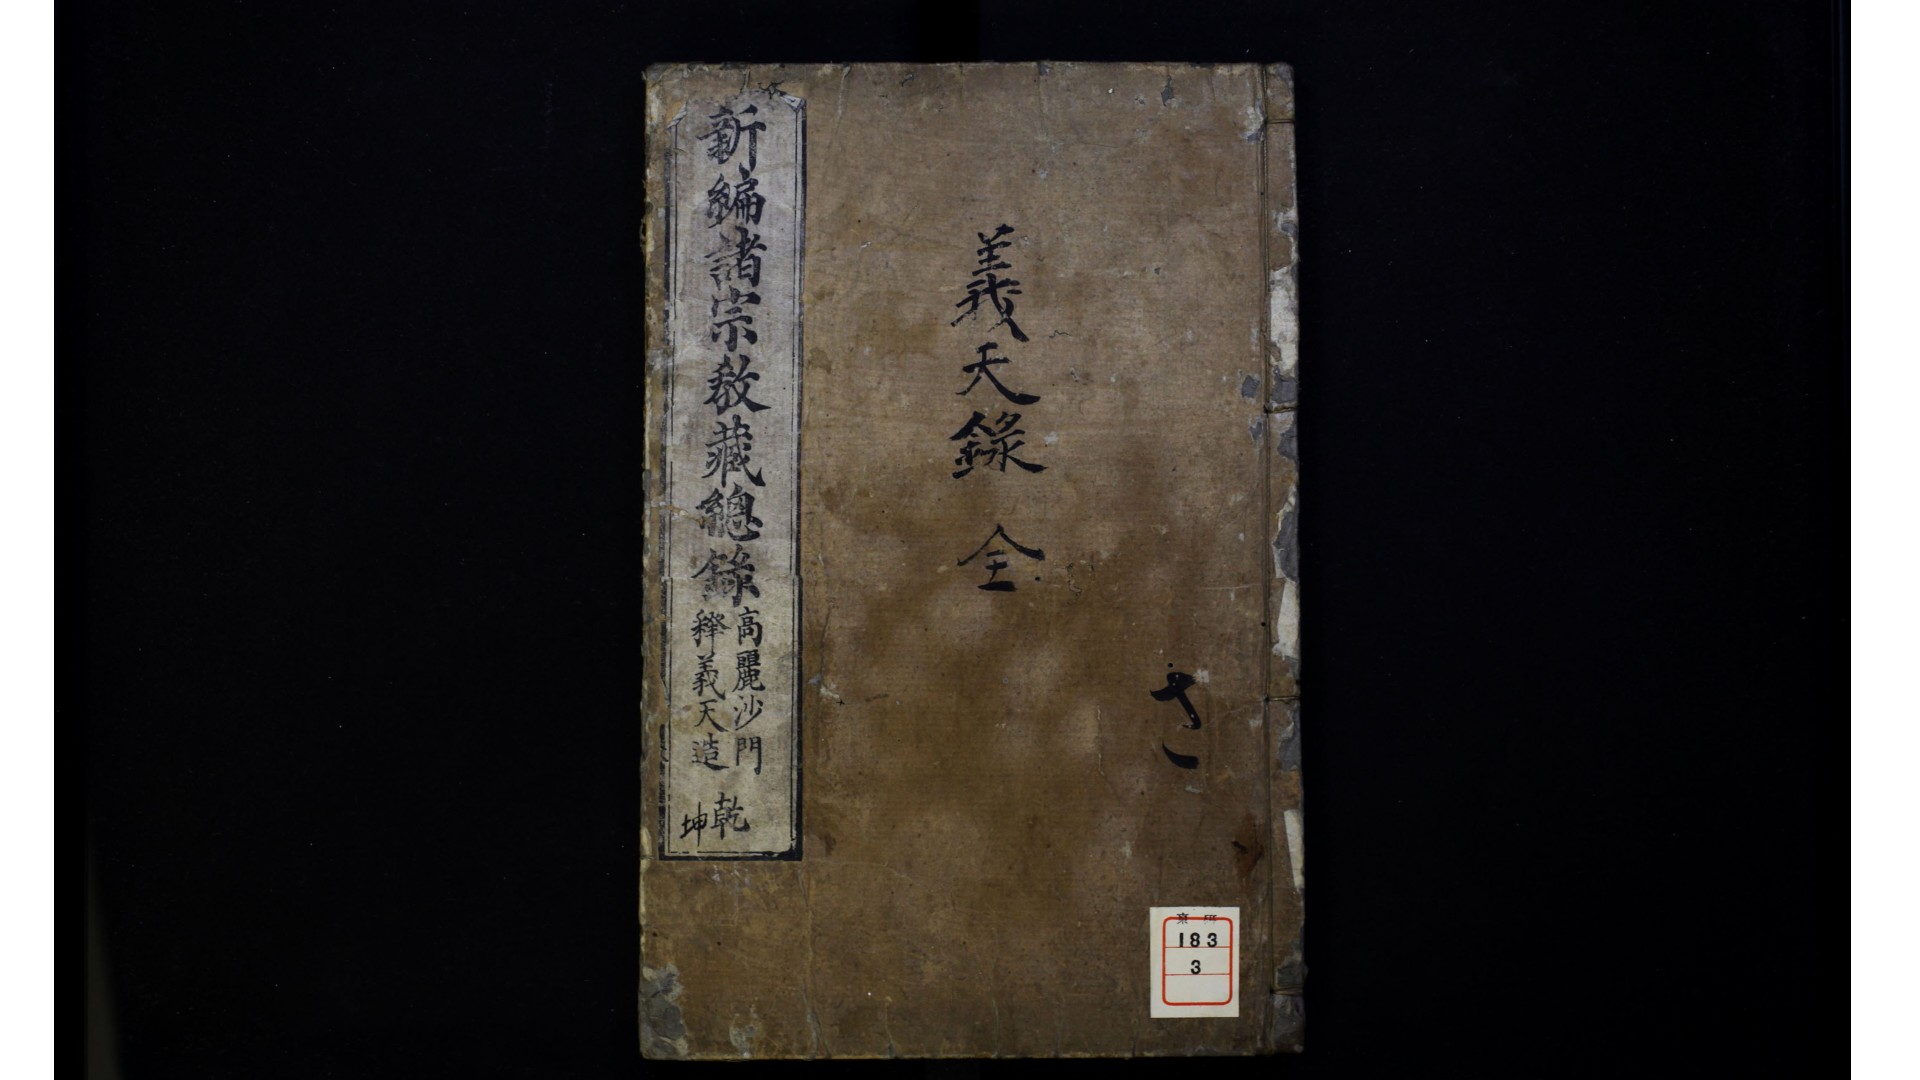 新編諸宗教藏總錄
高麗沙門
釋義天造
乾
坤
義天錄 全
さ
183
3